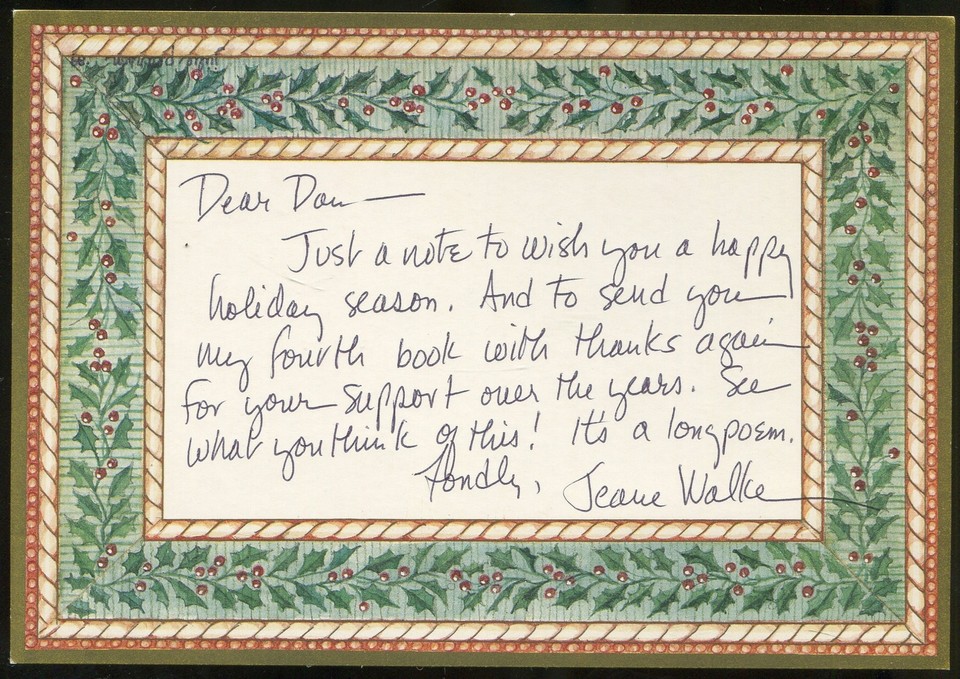 Dear Don —
Just a note to wish you a happy
holiday season. And to send you
my fourth book with thanks again
for your support over the years. See
what you think of this! It's a long poem.
Fondly,
Jeanne Walker